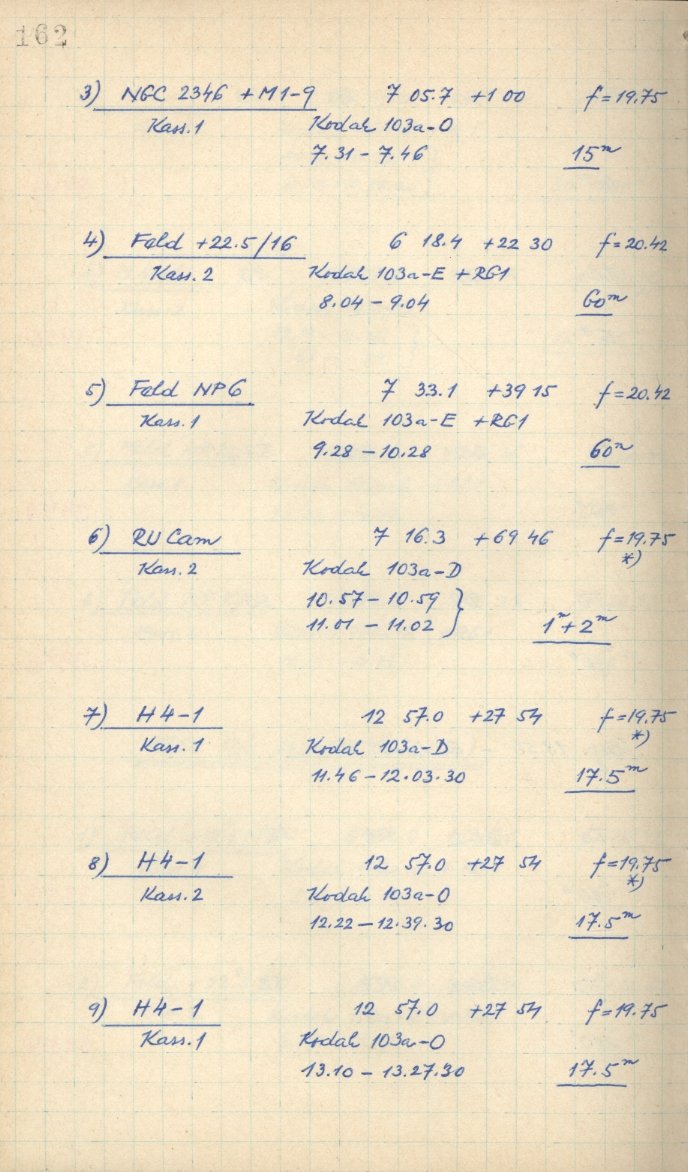 162
3) NGC 2346 + M1-9 7 05.7 +1 00 f=19.75
Kass.1 Kodak 103a-O
7.31 - 7.46 15m
4) Feld +22.5/16 6 18.4 +22 30 f=20.42
Kass.2 Kodak 103a-E +RG1
8.04 - 9.04 60m
5) Feld NP6 7 33.1 +39 15 f=20.42
Kass.1 Kodak 103a-E +RG1
9.28 - 10.28 60m
6) RU Cam 7 16.3 +69 46 f=19.75
*)
Kass.2 Kodak 103a-D
10.57 - 10.59
11.01 - 11.02 } 1m+2m
7) H4-1 12 57.0 +27 54 f=19.75
*)
Kass.1 Kodak 103a-D
11.46 - 12.03.30 17.5m
8) H4-1 12 57.0 +27 54 f=19.75
*)
Kass.2 Kodak 103a-O
12.22 - 12.39.30 17.5m
9) H4-1 12 57.0 +27 54 f=19.75
Kass.1 Kodak 103a-O
13.10 - 13.27.30 17.5m